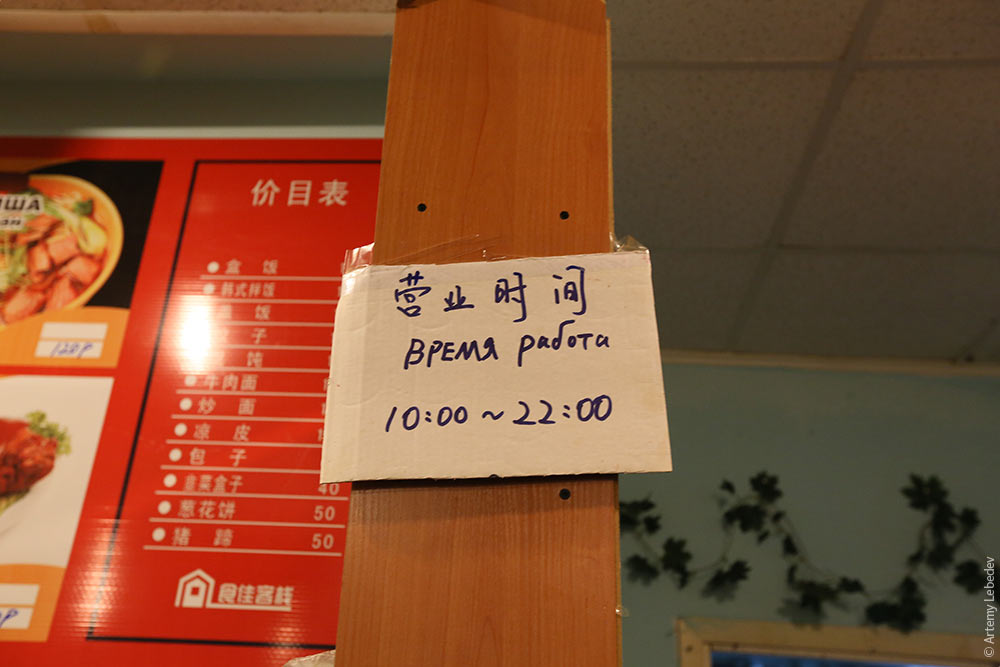 ША
120Р
价目表
盒 饭
韩式拌饭
饭
子
饨
牛肉面
炒 面
凉 皮
包 子
韭菜盒子 40
葱花饼 50
猪 蹄 50
食佳客栈
营业时间
ВРЕМЯ работа
10:00 ~ 22:00
© Artemy Lebedev